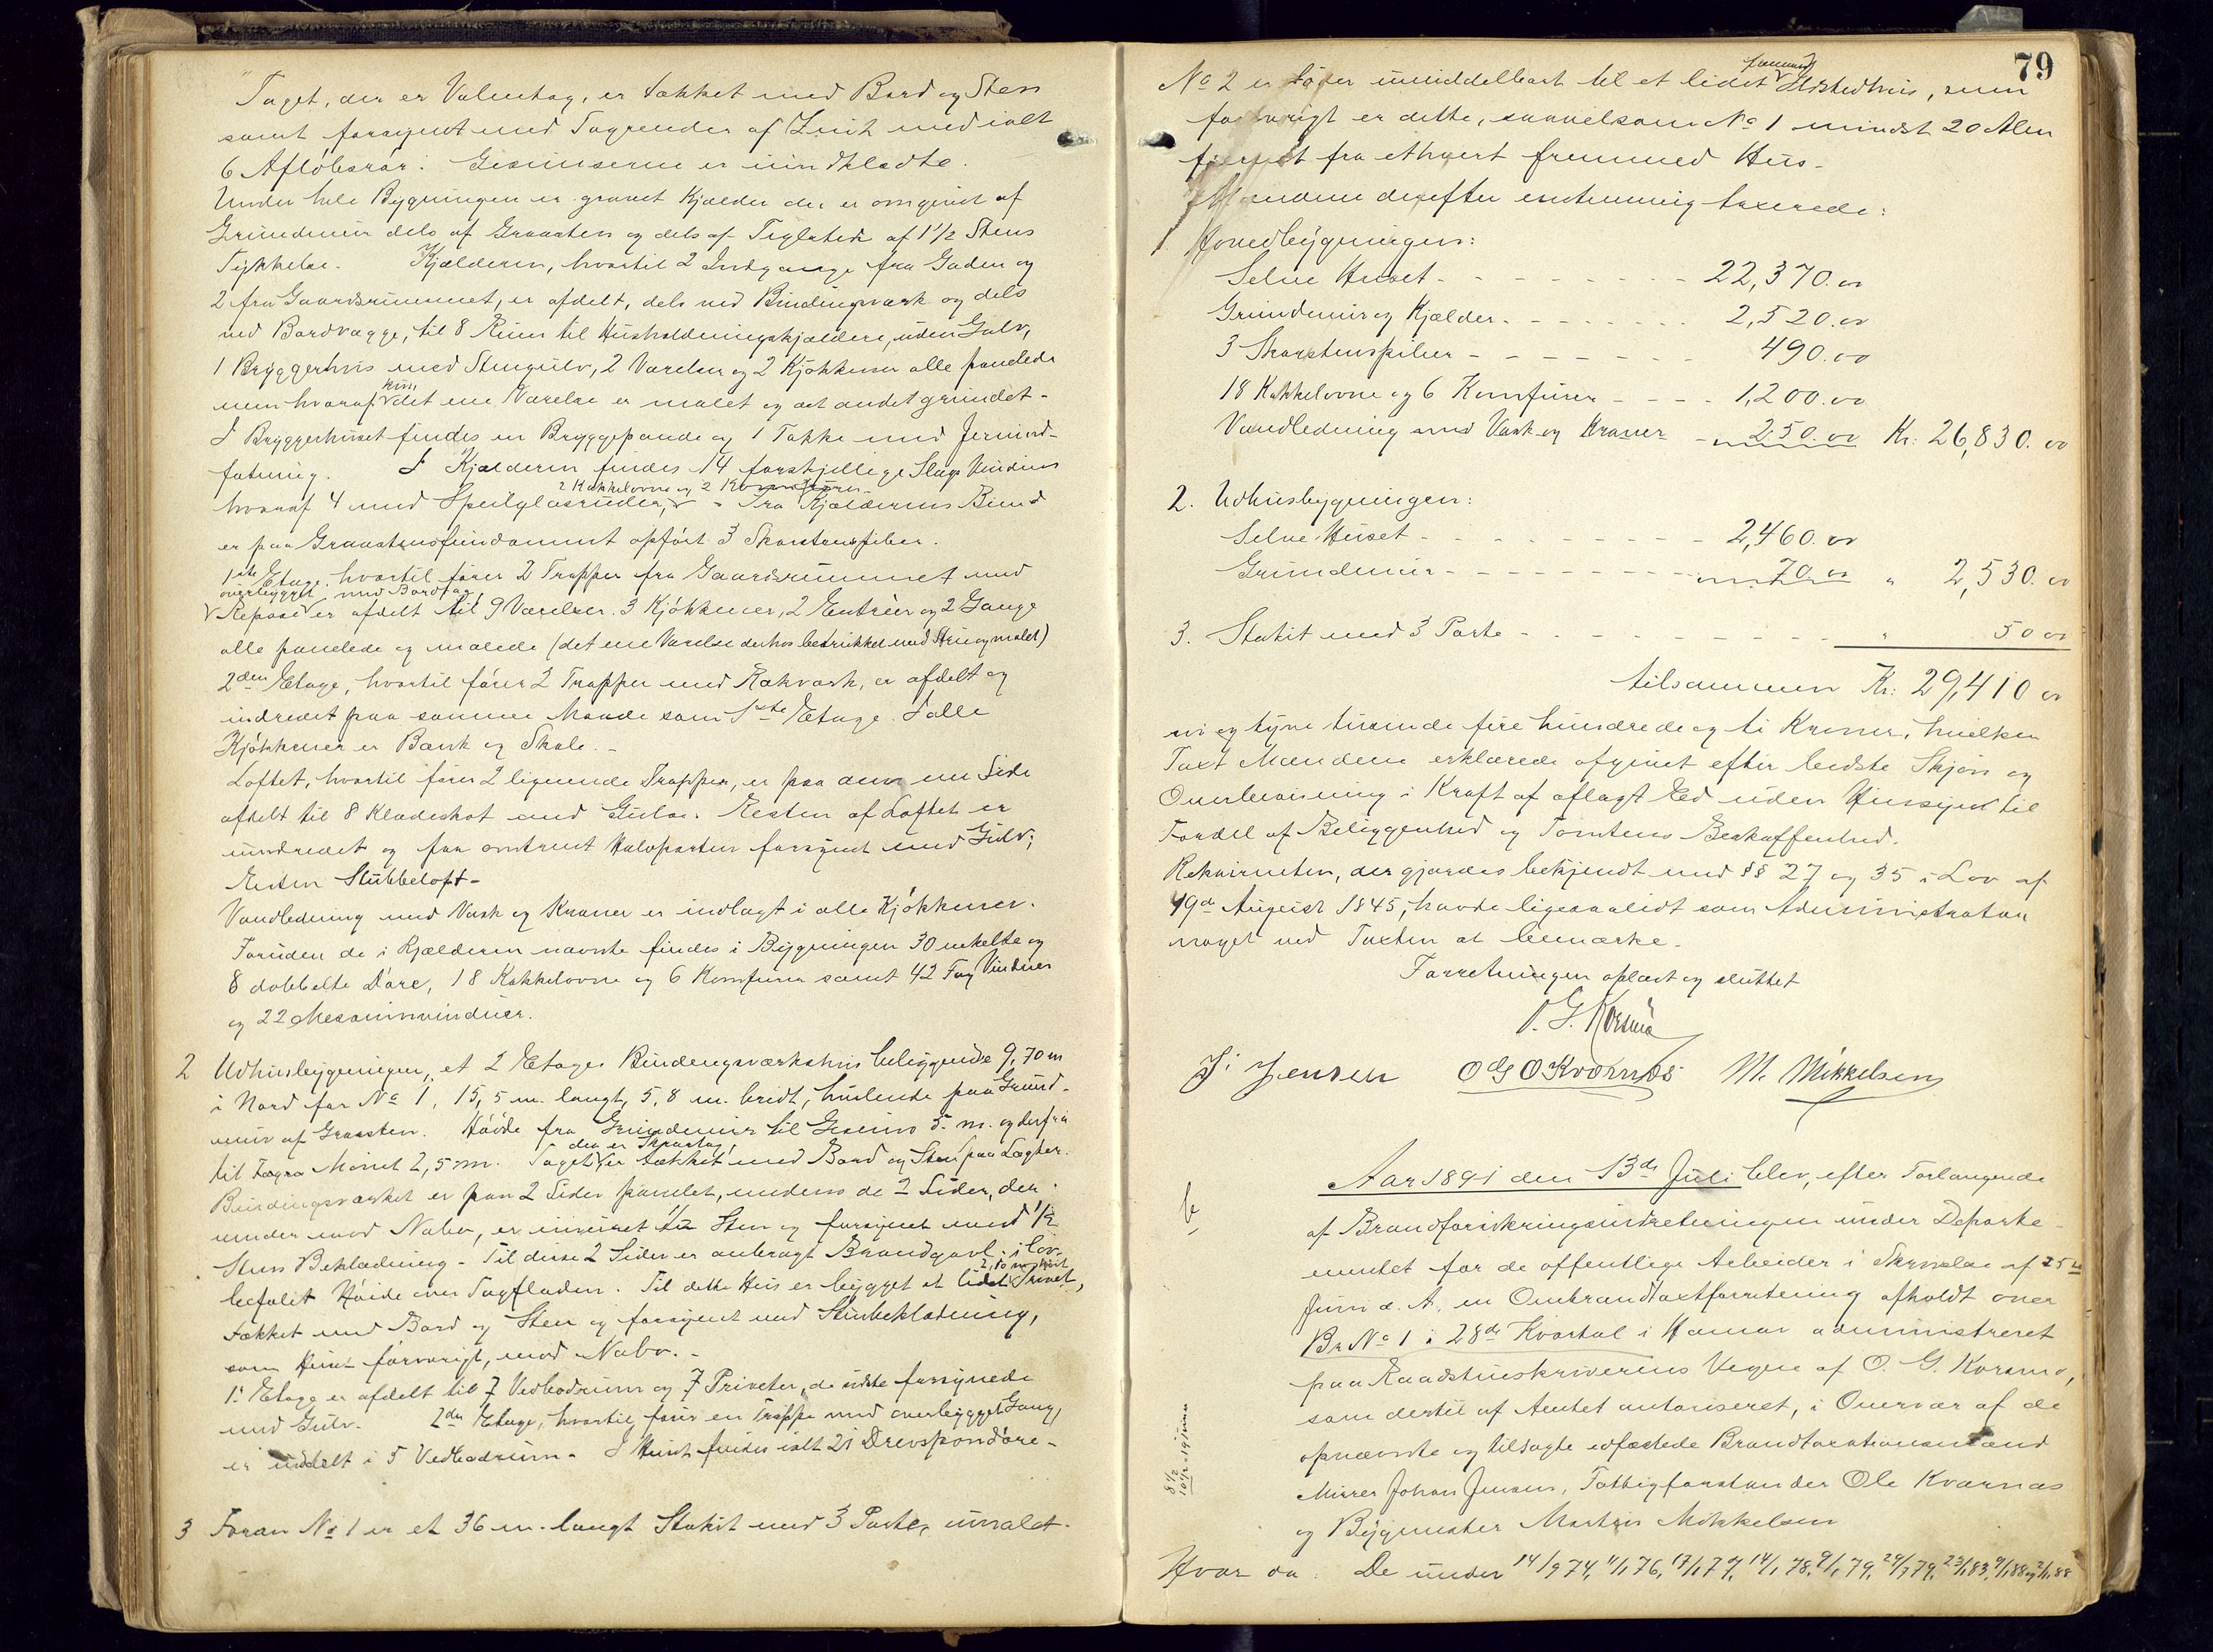 Taget, der er Valmtag, er tækket med Bord og Sten
samt forsynet med Tagrender af Zink med ialt
6 Afløbsrør. Gesimserne er uindklædte.
Under hele Bygningen er gravet Kjælder der er omgivet af
Grundmur dels af Graasten og dels af Teglsten af 1 1/2 Stens
Tykkelse. Kjælderen, hvortil 2 Indgange fra Gaden og
2 fra Gaardsrummet, er afdelt, dels ved Bindingsværk og dels
ved Bordvægge, til 8 Rum til Husholdningskjældere, uden Gulv,
1 Bryggerhus med Stengulv, 2 Værelser og 2 Kjøkkener alle panelede
men hvoraf kun det ene Værelse er malet og det andet grundet -
I Bryggerhuset findes en Bryggepande og 1 Takke med Jernind-
fatning. I Kjælderen findes 14 forskjellige Slags Vinduer
2 Kakkelovne og 2 Komfurer
hvoraf 4 med Speilglasruder, - Fra Kjælderens Bund
er paa Graastensfundament opført 3 Skorstenspiber.
1ste Etage, hvortil fører 2 Trapper fra Gaardsrummet med
overbygget med Bordtag
Repose er afdelt til 9 Værelser, 3 Kjøkkener, 2 Entréer og 2 Gange
alle panelede og malede (det ene Værelse derhos betrukket med Strie og malet)
2den Etage, hvortil fører 2 Trapper med Rækværk, er afdelt og
indredet paa samme Maade som 1ste Etage. I alle
Kjøkkener er Bænk og Skole. -
Loftet, hvortil fører 2 lignende Trapper, er paa den ene Side
afdelt til 8 Klædeskot med Gulv. Resten af Loftet er
uindredet og paa omtrent Halvparten forsynet med Gulv;
Resten Stubbeloft -
Vandledning med Vask og Kraner er indlagt i alle Kjøkkener.
Foruden de i Kjælderen nævnte findes i Bygningen 30 enkelte og
8 dobbelte Døre, 18 Kakkelovne og 6 Komfurer samt 42 Fag Vinduer
og 22 Mesaninvinduer.
2 Udhusbygningen, et 2 Etages Bindingsværkshus beliggende 9,70 m
i Nord for No 1, 15,5 m. langt, 5,8 m. bredt, hvilende paa Grund-
mur af Graasten. Høide fra Grundmur til Gesims 5. m. og derfra
der er Skraatag
til Tagets Mønet 2,5 m. Taget er tækket med Bord og Sten paa Lægter.
Bindingsværket er paa 2 Sider panelet, medens de 2 Sider, der
vender mod Nabo, er utmuret 1/2 Sten og forsynet med 1/2
Stens Beklædning - Til disse 2 Sider er anbragt Brandgavl i lov-
befalet Høide over Tagfladen. Til dette Hus er bygget et lidet Privet,
tækket med Bord og Sten og forsynet med Stenbeklædning,
som Huset forøvrigt, mod Nabo. -
1. Etage er afdelt til 7 Vedbodrum og 7 Priveter, de sidste forsynede
med Gulv. 2den Etage, hvortil fører en Trappe med overbygget Gang,
er inddelt i 5 Vedbodrum - I Huset findes ialt 21 Drevspondøre -
3 Foran No 1 er et 36 m. langt Stakit med 3 Porte, umalet.
79
No 2 er støder umiddelbart til et lidet fremmed Ildstedhus, men
forøvrigt er dette, saavelsom No 1 mindst 20 Alen
fjernet fra ethvert fremmed Hus -
Mændene derefter enstemmig taxerede:
1 Hovedbygningen:
Selve Huset - - - - - - - 22,370.00
Grundmur og Kjælder - - - - - - 2,520.00
3 Skorstenspiber - - - - - - - 490.00
18 Kakkelovne og 6 Komfurer - - - - 1,200.00
Vandledning med Vask og Kraner - 250.00 Kr: 26,830.00
2. Udhusbygningen:
Selve Huset - - - - - - - - - 2,460.00
Grundmur - - - - - - - - - 70.00 " 2,530.00
3. Stakit med 3 Porte - - - - - - - - - - - " 50 00
tilsammen Kr: 29,410 00
ni og tyve tusende fire hundrede og ti Kroner, hvilken
Taxt Mændene erklærede afgivet efter bedste Skjøn og
Overbevisning i Kraft af aflagt Ed uden Hensyn til
Fordel af Beliggenhed og Tomtens Beskaffenhed.
Rekvirenten, der gjordes bekjendt med §§ 27 og 35 i Lov af
19de August 1845, havde ligesaalidt som Administrator
noget ved Taxten at bemærke.
Forretningen oplæst og sluttet
O. G. Korsmo
J. Jensen Ole O Kværnæs M. Mikkelsen
b
Aar 1891 den 13de Juli blev, efter Forlangende
af Brandforsikringsindretningen under Departe-
mentet for de offentlige Arbeider i Skrivelse af 25de
Juni d. A. en Ombrandtaxtforretning afholdt over
Br No 1 i 28de Kvartal i Hamar administreret
paa Raadstueskriverens Vegne af O. G. Korsmo,
som dertil af Amtet autoriseret, i Overvær af de
opnævnte og tilsagte edfæstede Brandtaxationsmænd
Misrer Johan Jensen, Fattigforstander Ole Kværnæs
og Bygmester Martin Mikkelsen
Hvor da: De under 14/9 74, 11/1 76, 17/1 77, 14/1 78, 9/1 79, 29/7 79, 23/1 83, 9/1 88 og 2/1 88